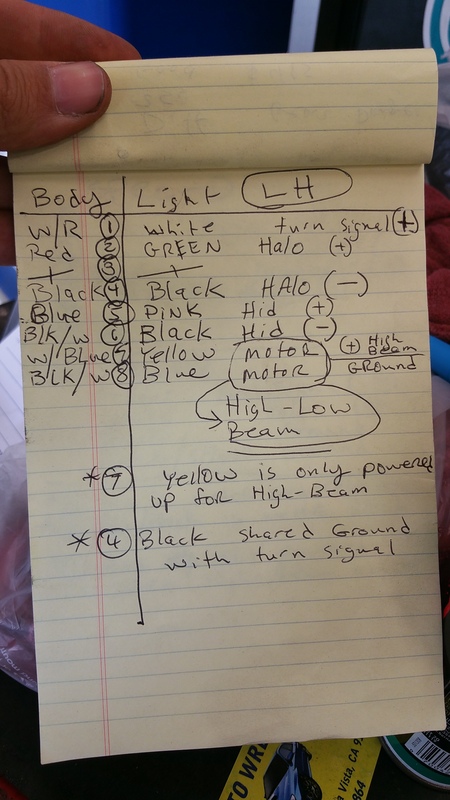 Body Light LH
W/R 1 white turn signal (+)
Red 2 GREEN Halo (+)
3
Black 4 Black HAlo (-)
Blue 5 PINK Hid (+)
Blk/w 6 Black Hid (-)
W/BLue 7 Yellow MOTOR (+) High Beam
BLK/W 8 Blue MOTOR GROUND
High-Low
Beam
*7 Yellow is only powered
up for High-Beam
*4 Black shared Ground
with turn signal
TO WR
a Vista, CA 9
964